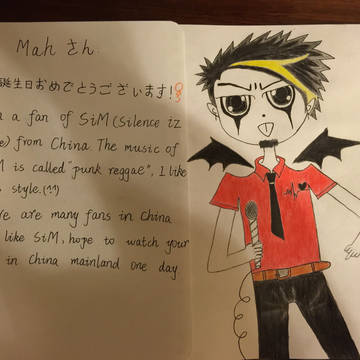 Mah さん:
誕生日おめでとうございます!
a fan of SiM (Silence iz
e) from China The music of
M is called "punk reggae", I like
style. (^^)
re are many fans in China
like SiM, hope to watch your
in China mainland one day